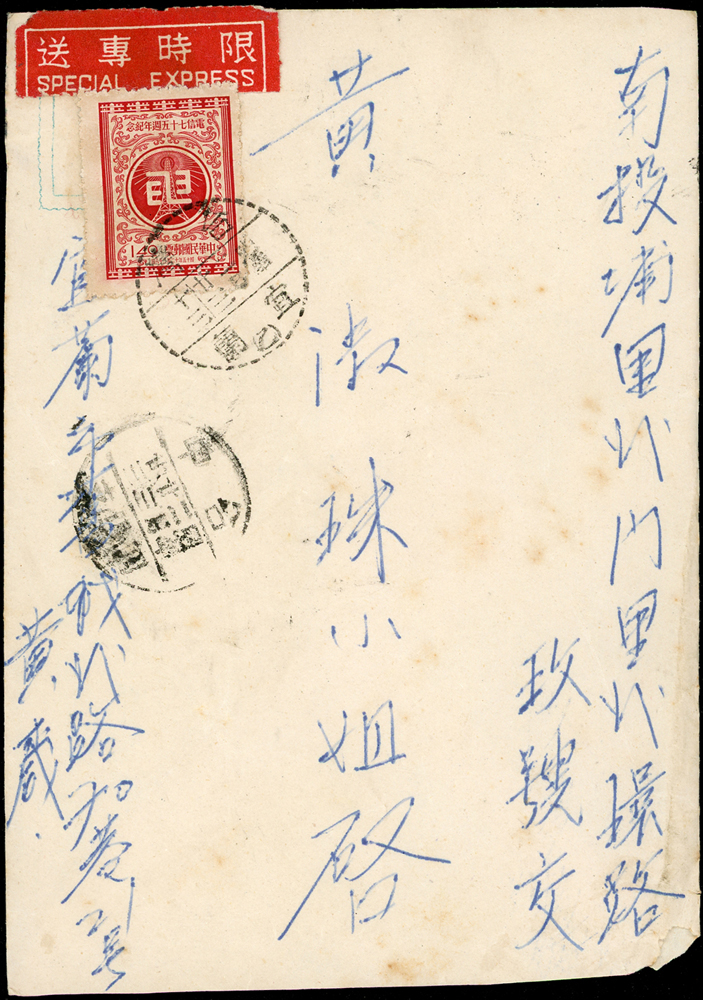 限時專送
SPECIAL EXPRESS
電信七十五週年紀念
中華民國郵票
南投埔里北門里北環路
玖號交
黃淑珠小姐啓
宜蘭市 城北路 巷 號
黃
宜蘭